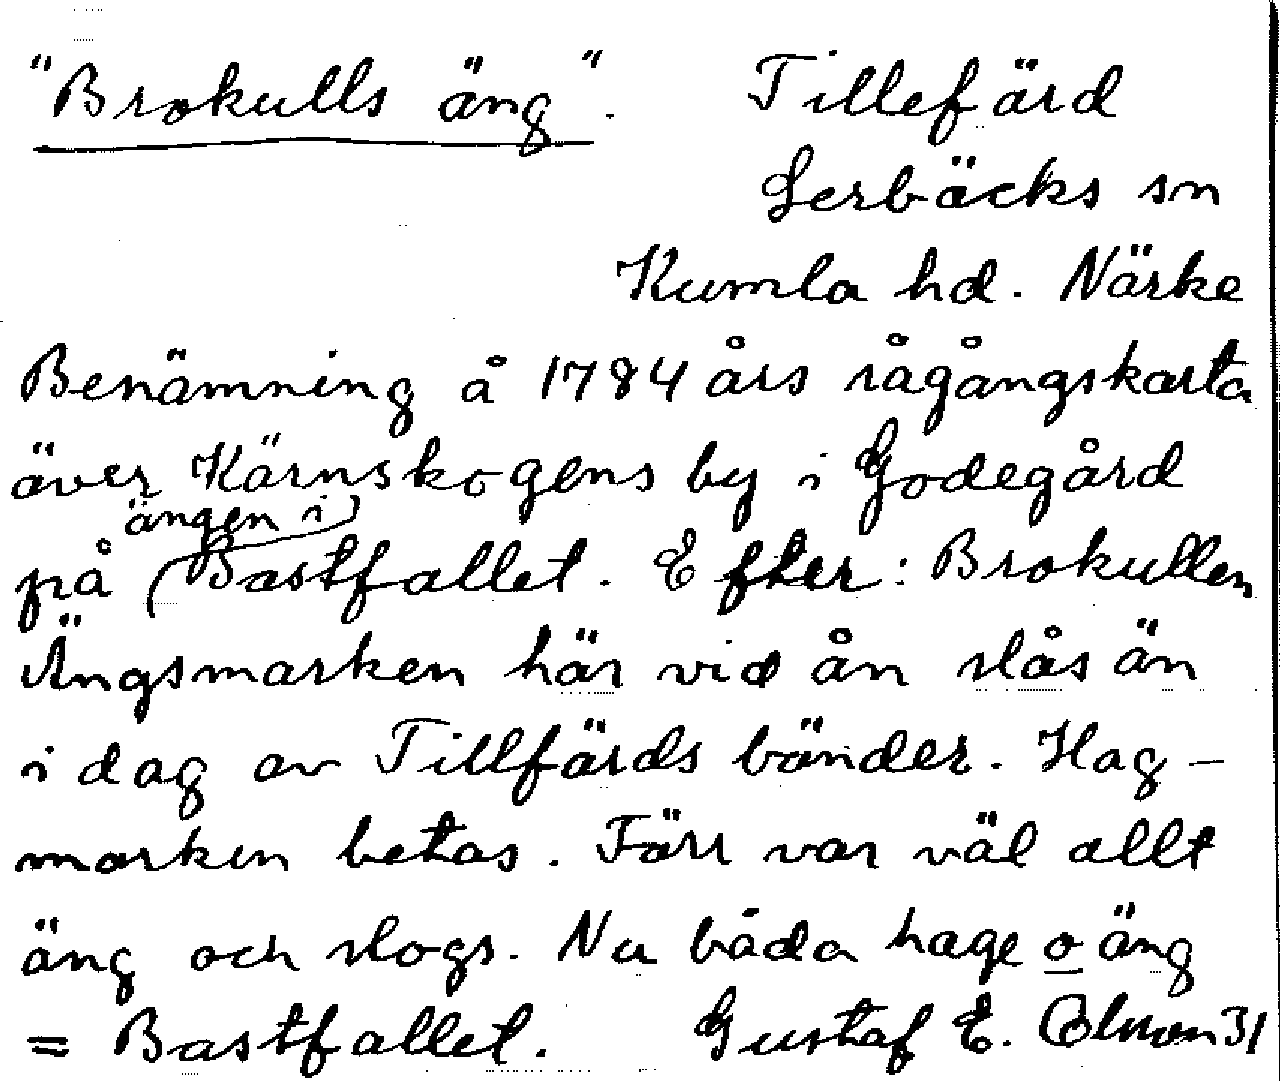 "Brokulls äng". Tillefärd
Lerbäcks sn
Kumla hd. Närke
Benämning å 1784 års rågångskarta
över Kärnskogens by i Godegård
på (ängen i) Bastfallet. Efter: Brokullen
Ängsmarken här vid ån slås än
i dag av Tillfärds bönder. Hag-
marken betas. Förr var väl allt
äng och slogs. Nu båda hage o äng
= Bastfallet. Gustaf E. Olsson 31